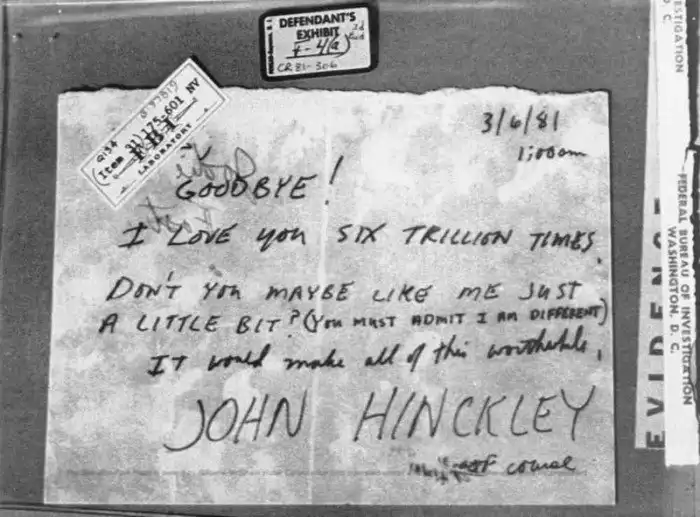 DEFENDANT'S
EXHIBIT
CR 81-306
Q134
(Item 31) 175-601 NV
FBI
LABORATORY
3/6/81
1:00am
GOODBYE!
I LOVE you SIX TRILLION TIMES.
DON'T YOU MAYBE LIKE ME JUST
A LITTLE BIT? (YOU MUST ADMIT I AM DIFFERENT)
IT would make all of this worthwhile,
JOHN HINCKLEY
of course
EVIDENCE
FEDERAL BUREAU OF INVESTIGATION
WASHINGTON, D. C.
ESTIGATION
D. C.